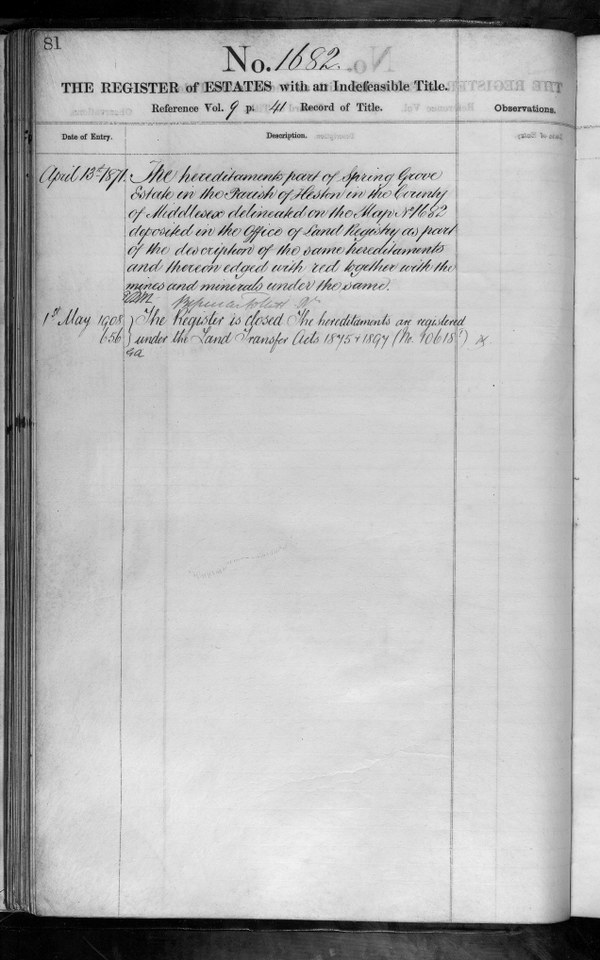 81
No. 1682.
THE REGISTER of ESTATES with an Indefeasible Title.
Reference Vol. 9 p. 41 Record of Title.
Observations.
Date of Entry.
Description.
April 13th 1871. The hereditaments part of Spring Grove
Estate in the Parish of Heston in the County
of Middlesex delineated on the Map No 1682
deposited in the Office of Land Registry as part
of the description of the same hereditaments
and thereon edged with red together with the
mines and minerals under the same.
1st May 1908 } The Register is closed The hereditaments are registered
656 } under the Land Transfer Acts 1875 & 1897 (No. 40618)